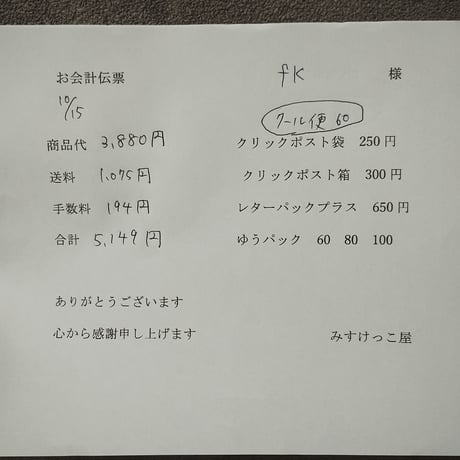 お会計伝票 fk 様
10/15
クール便 60
商品代 3,880円 クリックポスト袋 250円
送料 1,075円 クリックポスト箱 300円
手数料 194円 レターパックプラス 650円
合計 5,149円 ゆうパック 60 80 100
ありがとうございます
心から感謝申し上げます みすけっこ屋